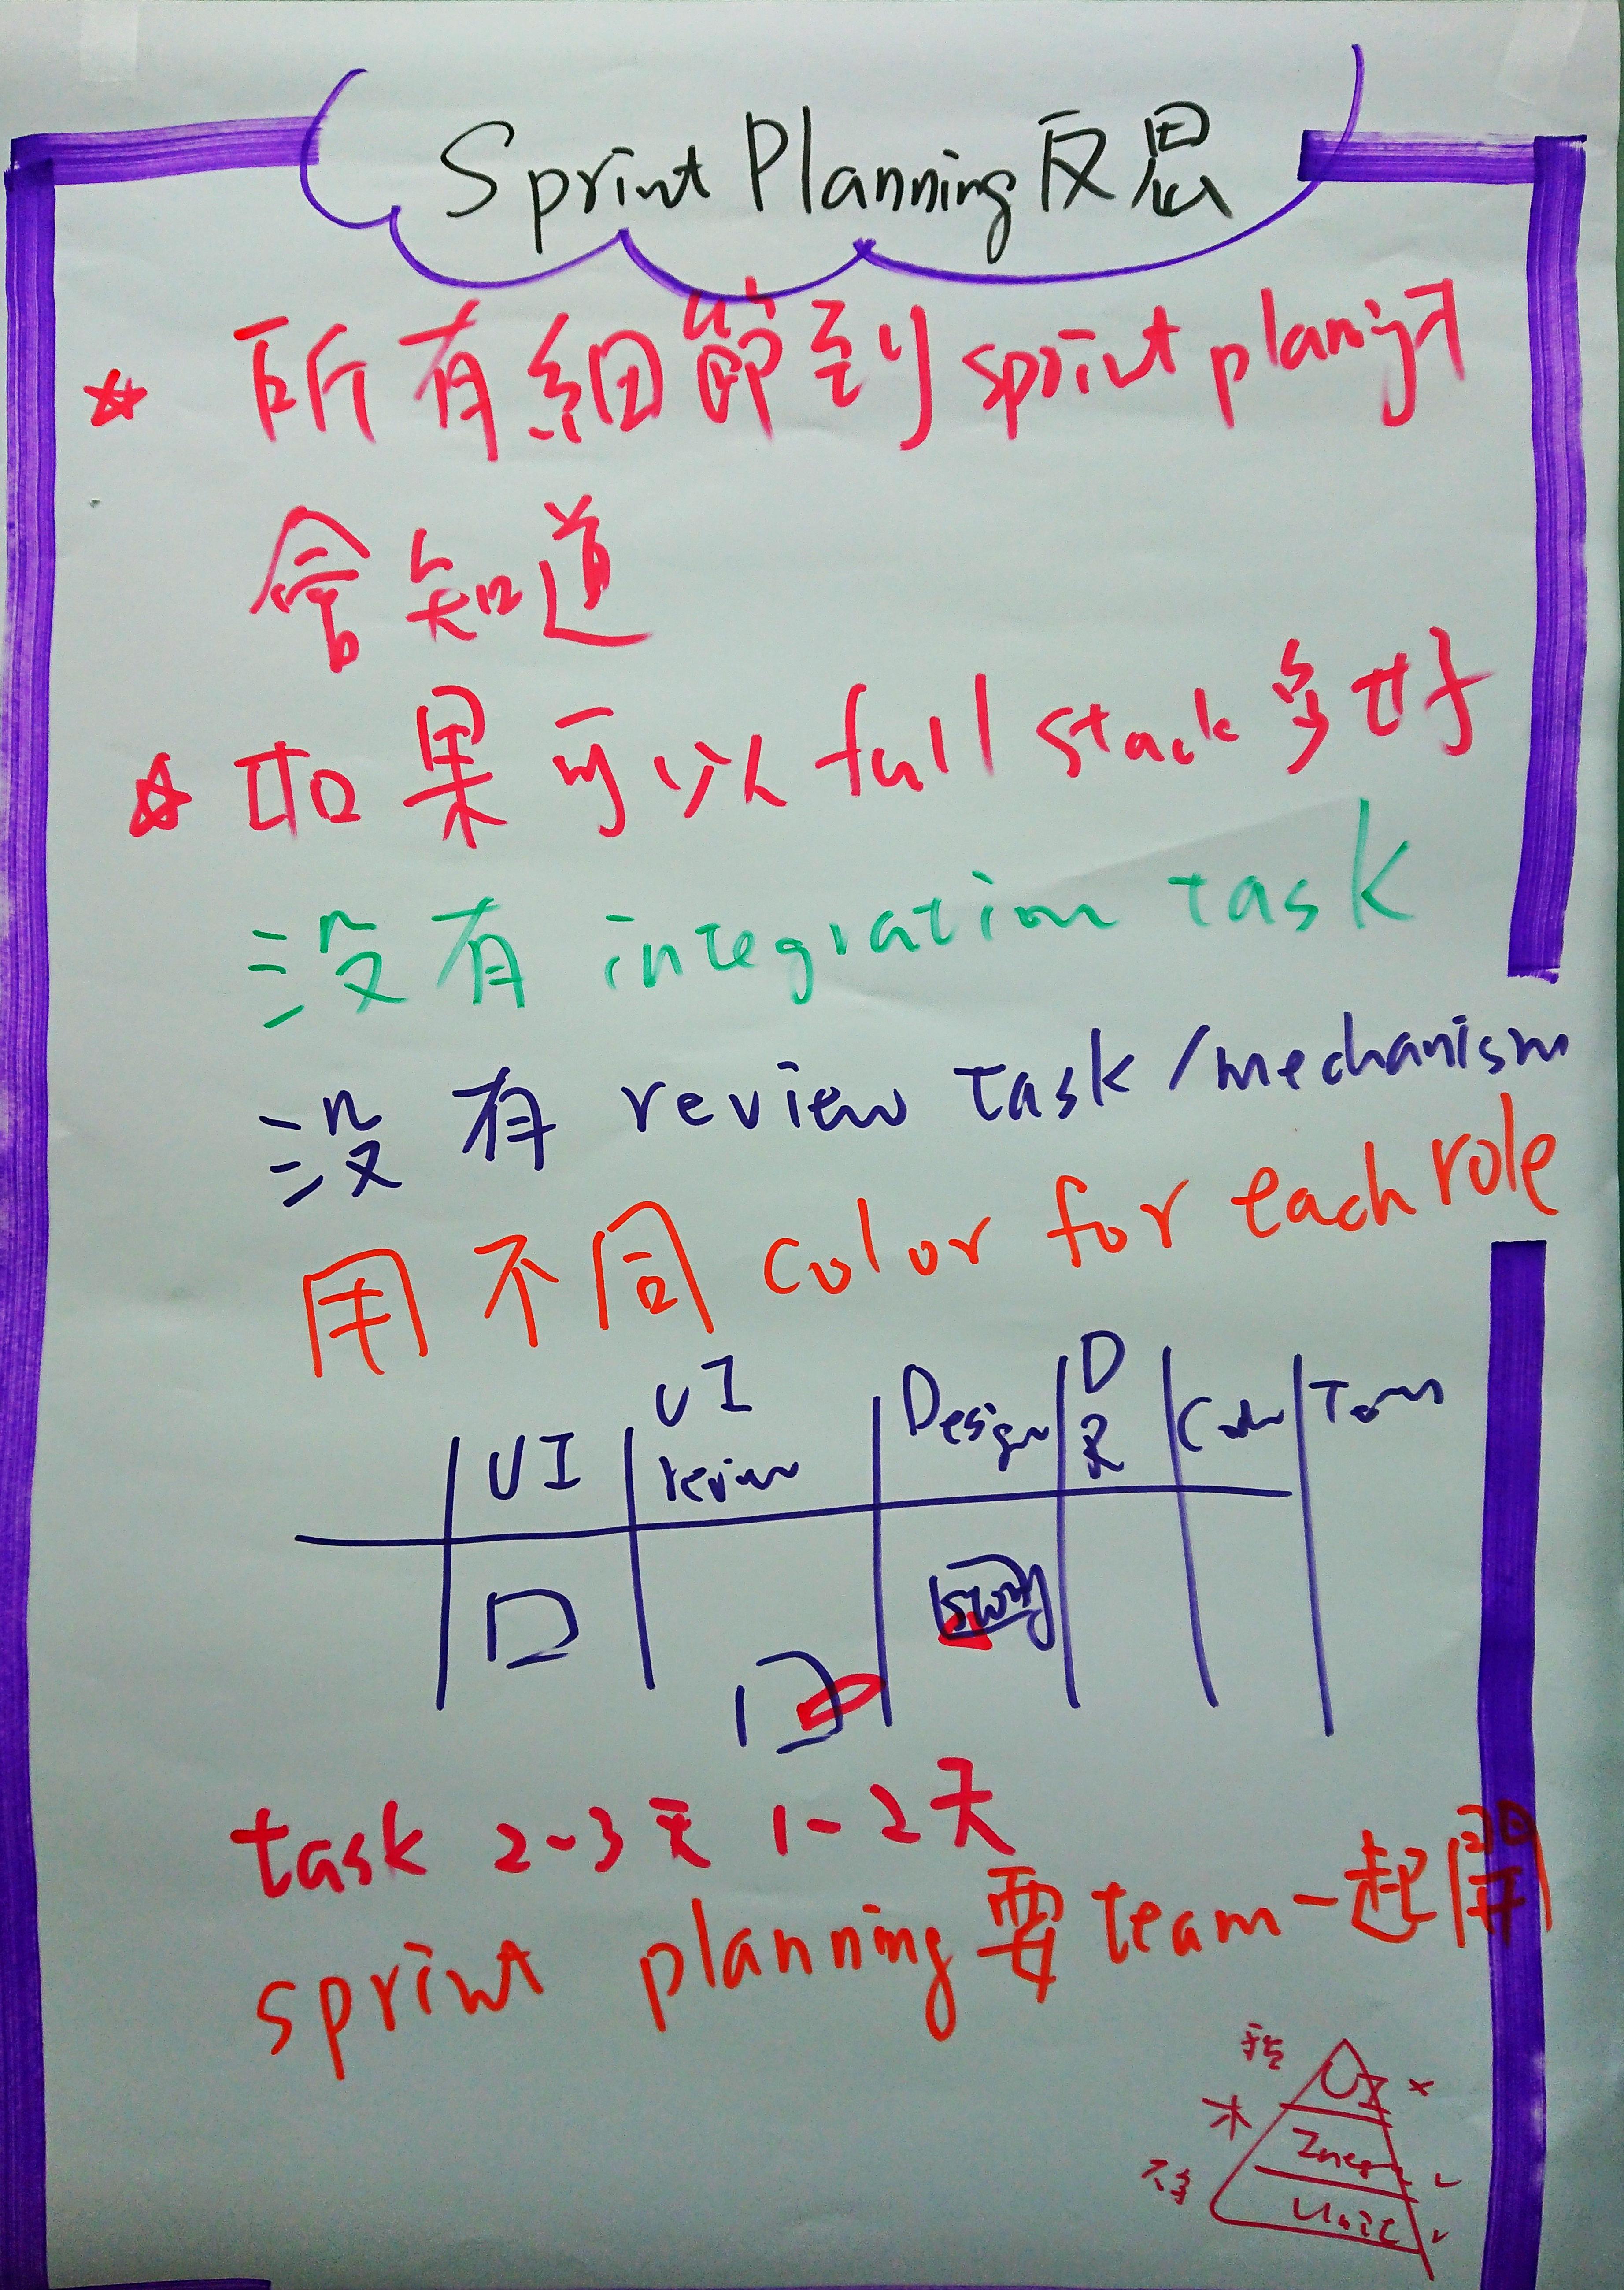 Sprint Planning 反思
所有細節到 sprint planing 才
會知道
如果可以 full stack 多好
沒有 integration task
沒有 review task / mechanism
用不同 color for each role
UI
UI review
Design
D R
Code
story
task 2-3天 1-2天
sprint planning 要 team 一起開
UI ×
Unit ✓